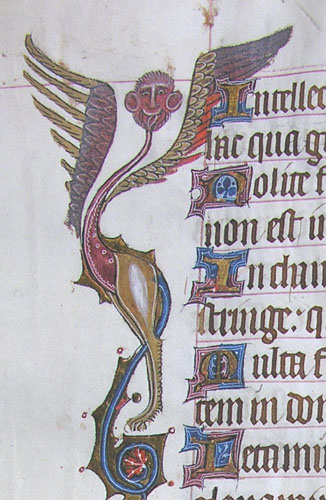 Intellec
hac qua g
Nolite f
non est i
In cham
stringe: q
Multa f
tem in do
Letami